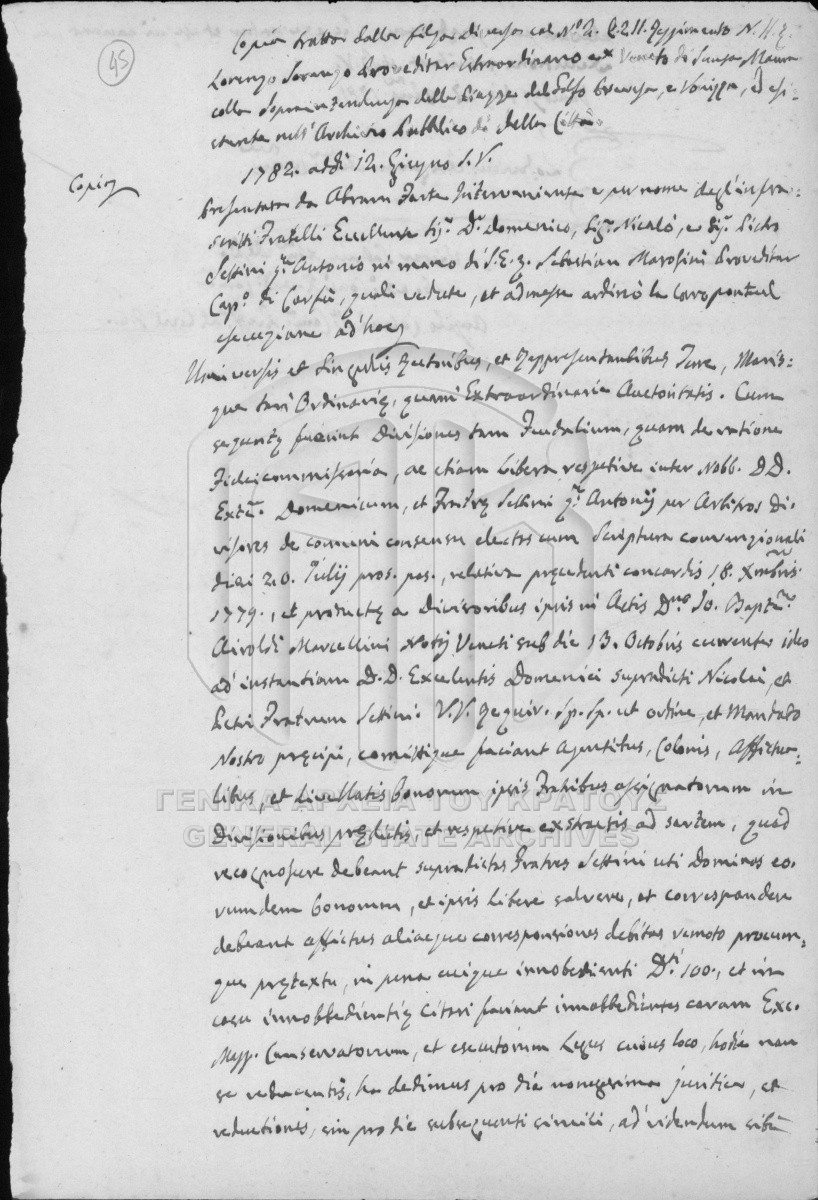 45
Copia tratta dalla filza diversa col N.º 2. C. 211. Reggimento N. H. Z.
Lorenzo Soranzo Proveditor Extraordinario ex Veneto di Santa Maura
colla Sopraintendenza delle Piazze del Golfo Prevesa, e Vonizza, ed esi-
stente nell'Archivio Pubblico di della Città
1782. addi 12. Giugno S. V.
Copia
Presentata da Abram Forte Interveniente e per nome degl'infra-
scritti Fratelli Eccellente Sig.r D.r Domenico, Sig.r Nicolò, e Sig.r Pietro
Settini q.m Antonio in mano di S. E. Z. Sebastian Morosini Proveditor
Cap.o di Corfù, quali vedute, et admesse ordinò la
esecuzione ad hoc
Universis et Singulis Rectoribus, et Reppresentantibus Terre, Maris-
que tam Ordinarie, quam Extraordinarie Auctoritatis. Cum
sequute fuerint Divisiones tam Feudalium, quam de ratione
Fideicommissaria, ac etiam Libera respetive inter Nobb. DD.
Domenicum, et Fratres Settini q.m Antonij per Arbitros di-
visores de comuni consensu electos cum Scriptura convenzionali
diei 20. Julij pros. pas., relativa precedenti concordis 18. Xmbris
1779., et producte a Divisoribus ipsis in Actis D.ni Jo. Bapt.e
Airoldi Marcellini Notij Veneti sub die 13. Octobris currente ideo
ad instantiam D. D. Excelentis Domenici supradicti Nicolai, et
Petri Fratrum Settini. V. V. Requir. Sp. Sp. ut ordine, et Mandato
Nostro precipi, comittique faciant Agentibus, Colonis, Affictua-
libus, et Livellatis bonorum ipsis Fratribus assignatorum in
Divisionibus predictis, et respetive exstractis ad sortem, quod
recognoscere debeant supradictos Fratres Settini uti Dominos eo-
rumdem bonorum, et ipsis Libere solvere, et correspondere
debeant affictus aliasque corresponsiones debitas remoto procum-
que pretextu, in pena cuique innobedienti D.ti 100., et in
casu innobbedientie Citari faciant innobbedientes coram Exc.
Mass. Conservatorum, et esecutorum Legus cuius loco, hodie non
se reducentis, ha dedimus pro die nonegesima juritica, et
reductionis, sin pro die subsequenti simili, ad videndum sibi
ΓΕΝΙΚΑ ΑΡΧΕΙΑ ΤΟΥ ΚΡΑΤΟΥΣ
GENERAL STATE ARCHIVES